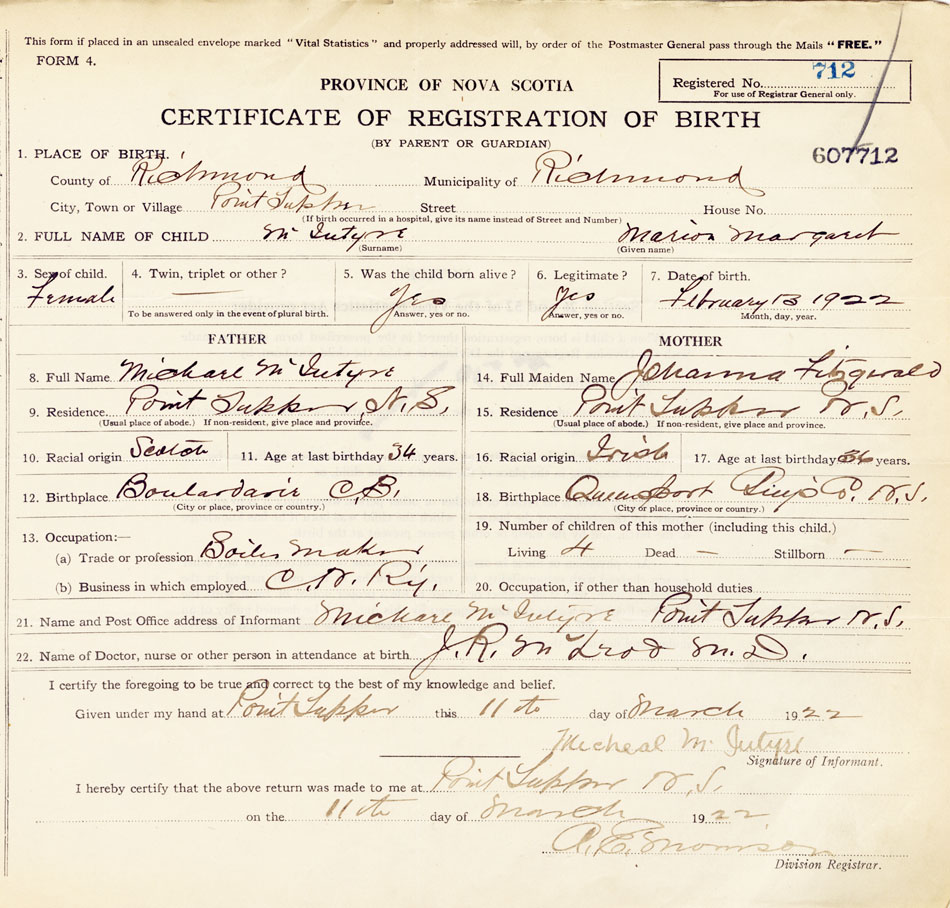 This form if placed in an unsealed envelope marked "Vital Statistics" and properly addressed will, by order of the Postmaster General pass through the Mails "FREE."
FORM 4.
Registered No. 712
For use of Registrar General only.
PROVINCE OF NOVA SCOTIA
CERTIFICATE OF REGISTRATION OF BIRTH
(BY PARENT OR GUARDIAN)
607712
1. PLACE OF BIRTH.
County of Richmond Municipality of Richmond
City, Town or Village Point Tupper Street House No.
(If birth occurred in a hospital, give its name instead of Street and Number)
2. FULL NAME OF CHILD McIntyre Marion Margaret
(Surname) (Given name)
3. Sex of child. 4. Twin, triplet or other? 5. Was the child born alive? 6. Legitimate? 7. Date of birth.
Female — Yes Yes February 13 1922
To be answered only in the event of plural birth. Answer, yes or no. Answer, yes or no. Month, day, year.
FATHER MOTHER
8. Full Name Michael McIntyre 14. Full Maiden Name Johanna Fitzgerald
9. Residence. Point Tupper, N.S. 15. Residence Point Tupper N.S.
(Usual place of abode.) If non-resident, give place and province. (Usual place of abode.) If non-resident, give place and province.
10. Racial origin Scotch 11. Age at last birthday 34 years. 16. Racial origin Irish 17. Age at last birthday 36 years.
12. Birthplace Boulardarie C.B. 18. Birthplace Queensport N.S.
(City or place, province or country.) (City or place, province or country.)
13. Occupation:— 19. Number of children of this mother (including this child.)
(a) Trade or profession Boiler Maker Living 4 Dead — Stillborn —
(b) Business in which employed C.N. Ry. 20. Occupation, if other than household duties
21. Name and Post Office address of Informant Michael McIntyre Point Tupper N.S.
22. Name of Doctor, nurse or other person in attendance at birth J.R. McLeod M.D.
I certify the foregoing to be true and correct to the best of my knowledge and belief.
Given under my hand at Point Tupper this 11th day of March 1922
Micheal McIntyre
Signature of Informant.
I hereby certify that the above return was made to me at Point Tupper N.S.
on the 11th day of March 1922
A.E. Morrison
Division Registrar.